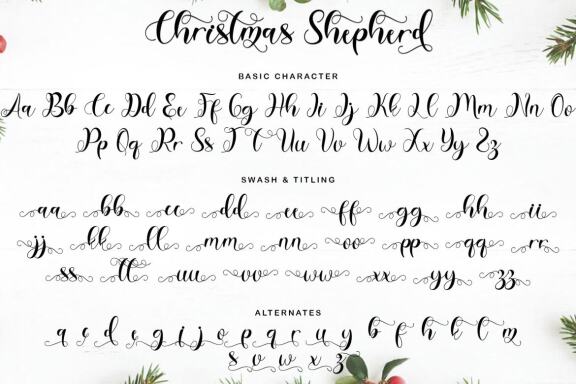 Christmas Shepherd
BASIC CHARACTER
Aa Bb Cc Dd Ee Ff Gg Hh Ii Jj Kk Ll Mm Nn Oo
Pp Qq Rr Ss T t Uu Vv Ww Xx Yy Zz
SWASH & TITLING
aa bb cc dd ee ff gg hh ii
jj kk ll mm nn oo pp qq rr
ss tt uu vv ww xx yy zz
ALTERNATES
a c d e g i j o p q r u y b f h k t m
s v w x z